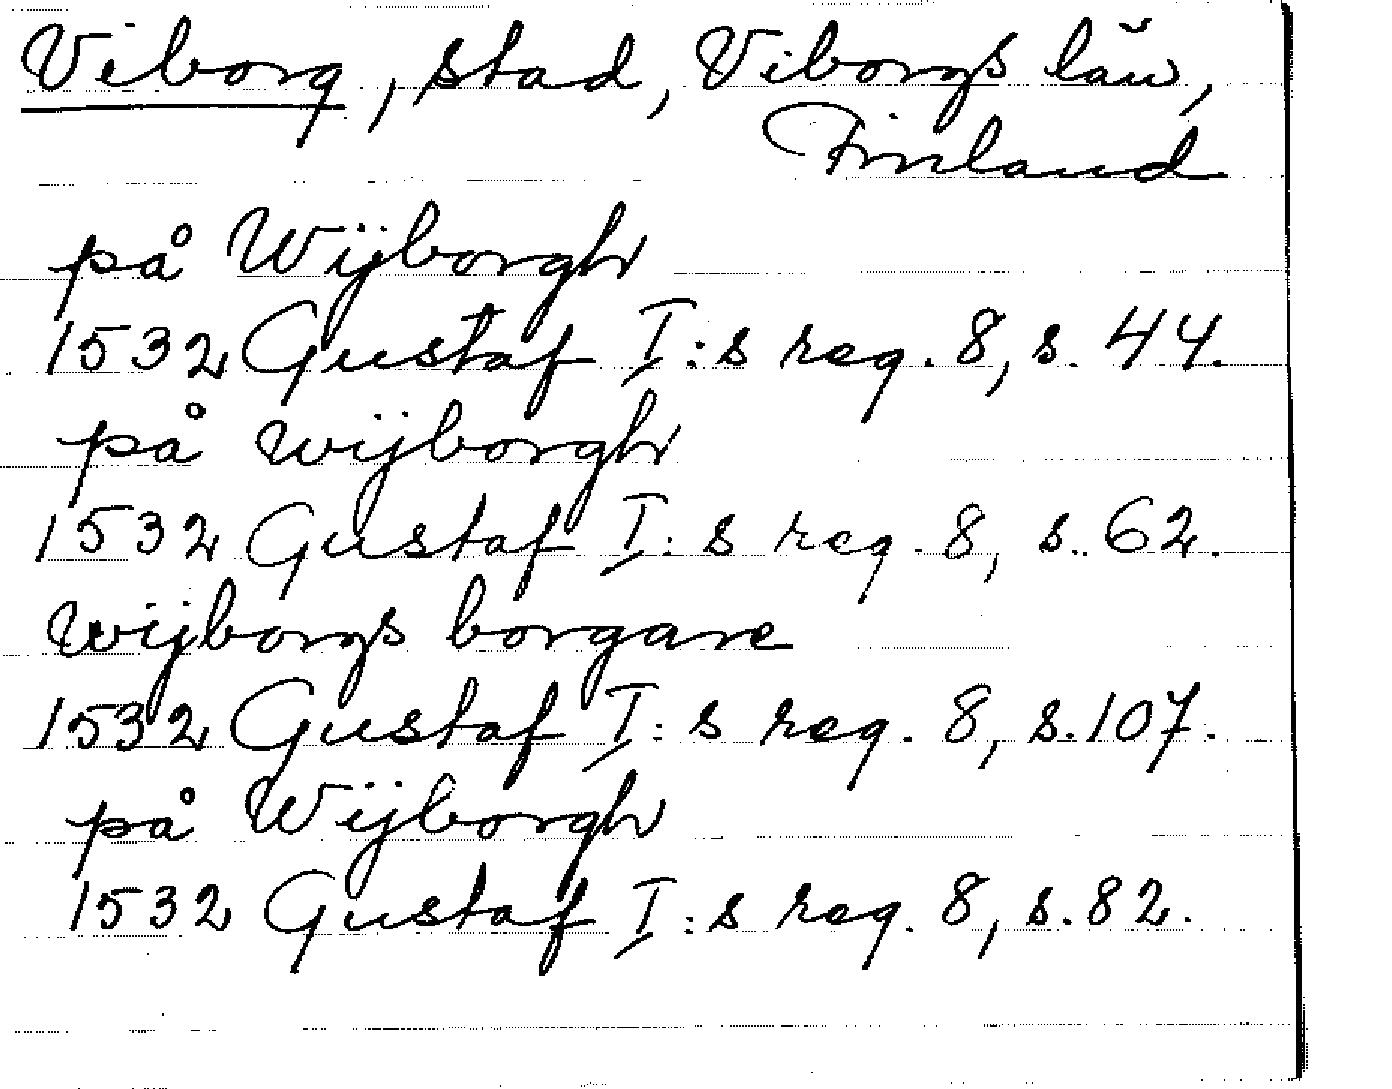 Viborg, stad, Viborgs län,
Finland
på Wijborgh
1532 Gustaf I:s reg. 8, s. 44.
på wijborgh
1532 Gustaf I:s reg. 8, s. 62.
Wijborgs borgare
1532 Gustaf I:s reg. 8, s. 107.
på Wijborgh
1532 Gustaf I:s reg. 8, s. 82.